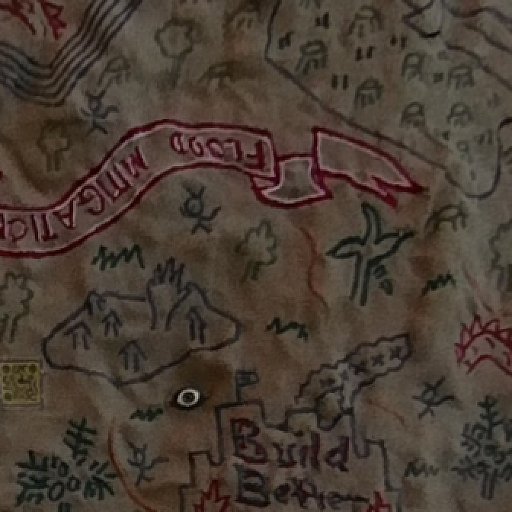 FLOOD MITIGATIC
Build
Better